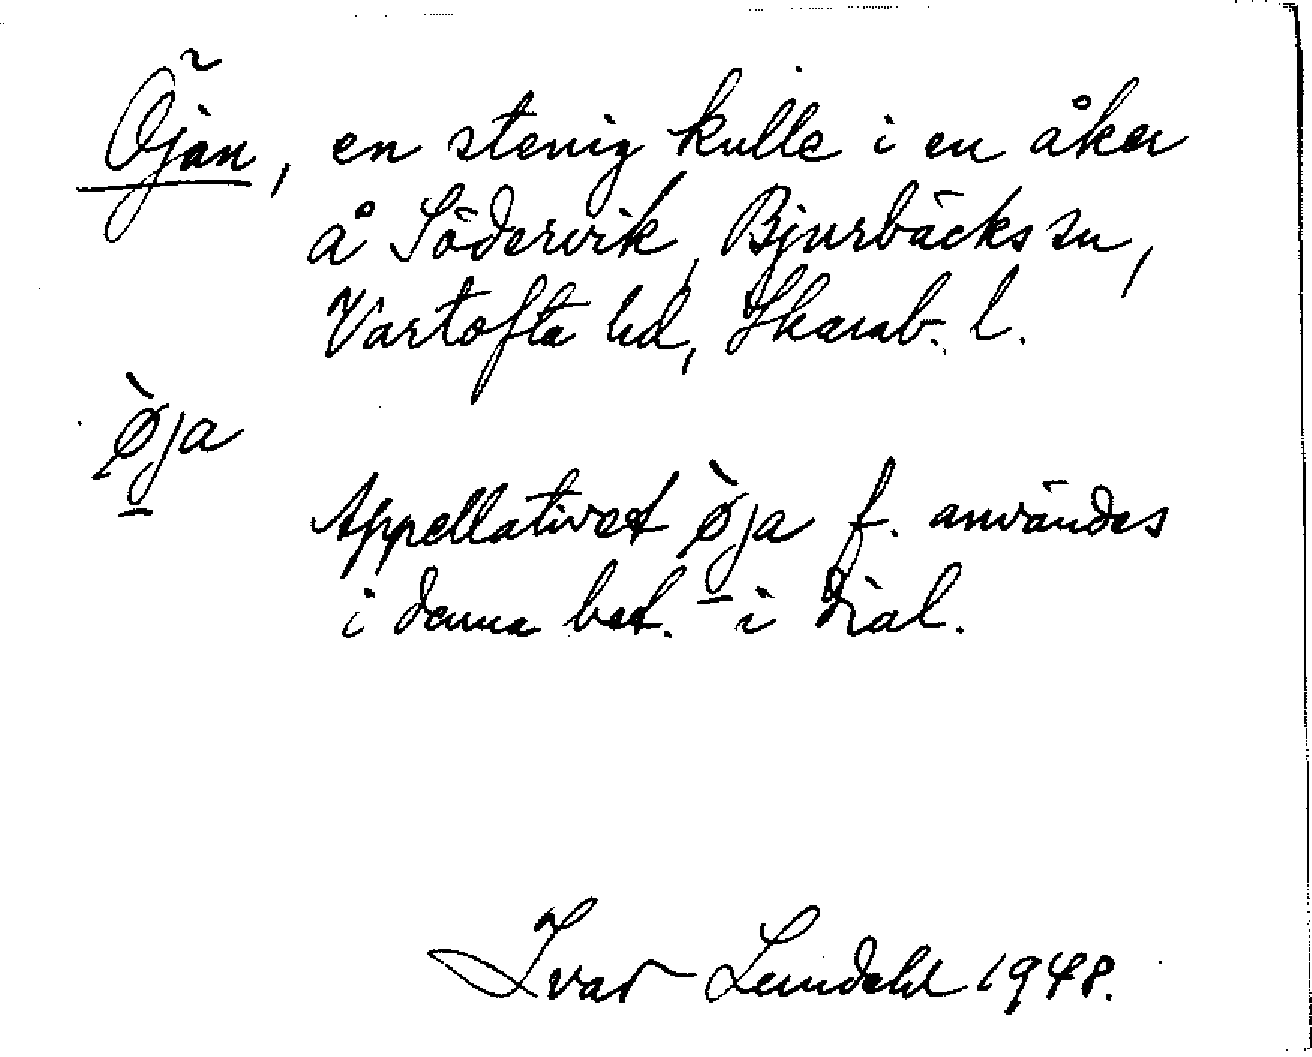 Öjan, en stenig kulle i en åker
å Södervik, Bjurbäcks sn,
Vartofta hd, Skarab. l.
ø̀ja
Appellativet ø̀ja f. användes
i denna bet. i dial.
Ivar Lundahl 1948.